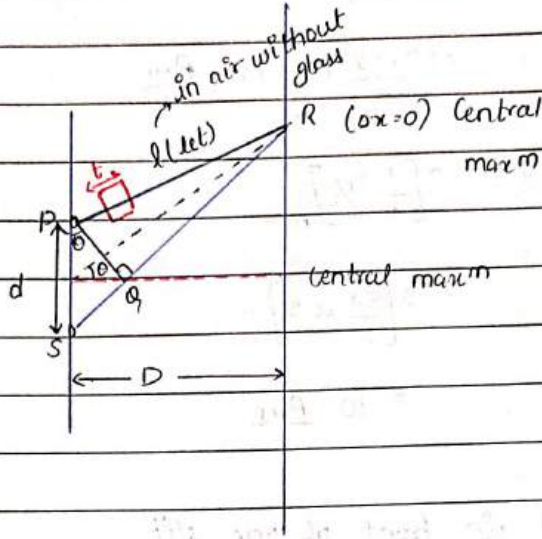 in air without
glass
R (Δx=0) Central
maxm
l (let)
t
P
θ
θ
d
Q
Central maxm
S
D